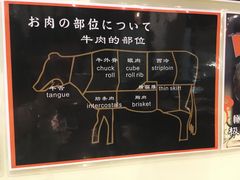 お肉の部位について
牛肉的部位
牛外脊
chuck
roll
眼肉
cube
roll rib
西冷
striploin
牛舌
tangue
thin skirt
肋条肉
intercostals
胸肉
brisket